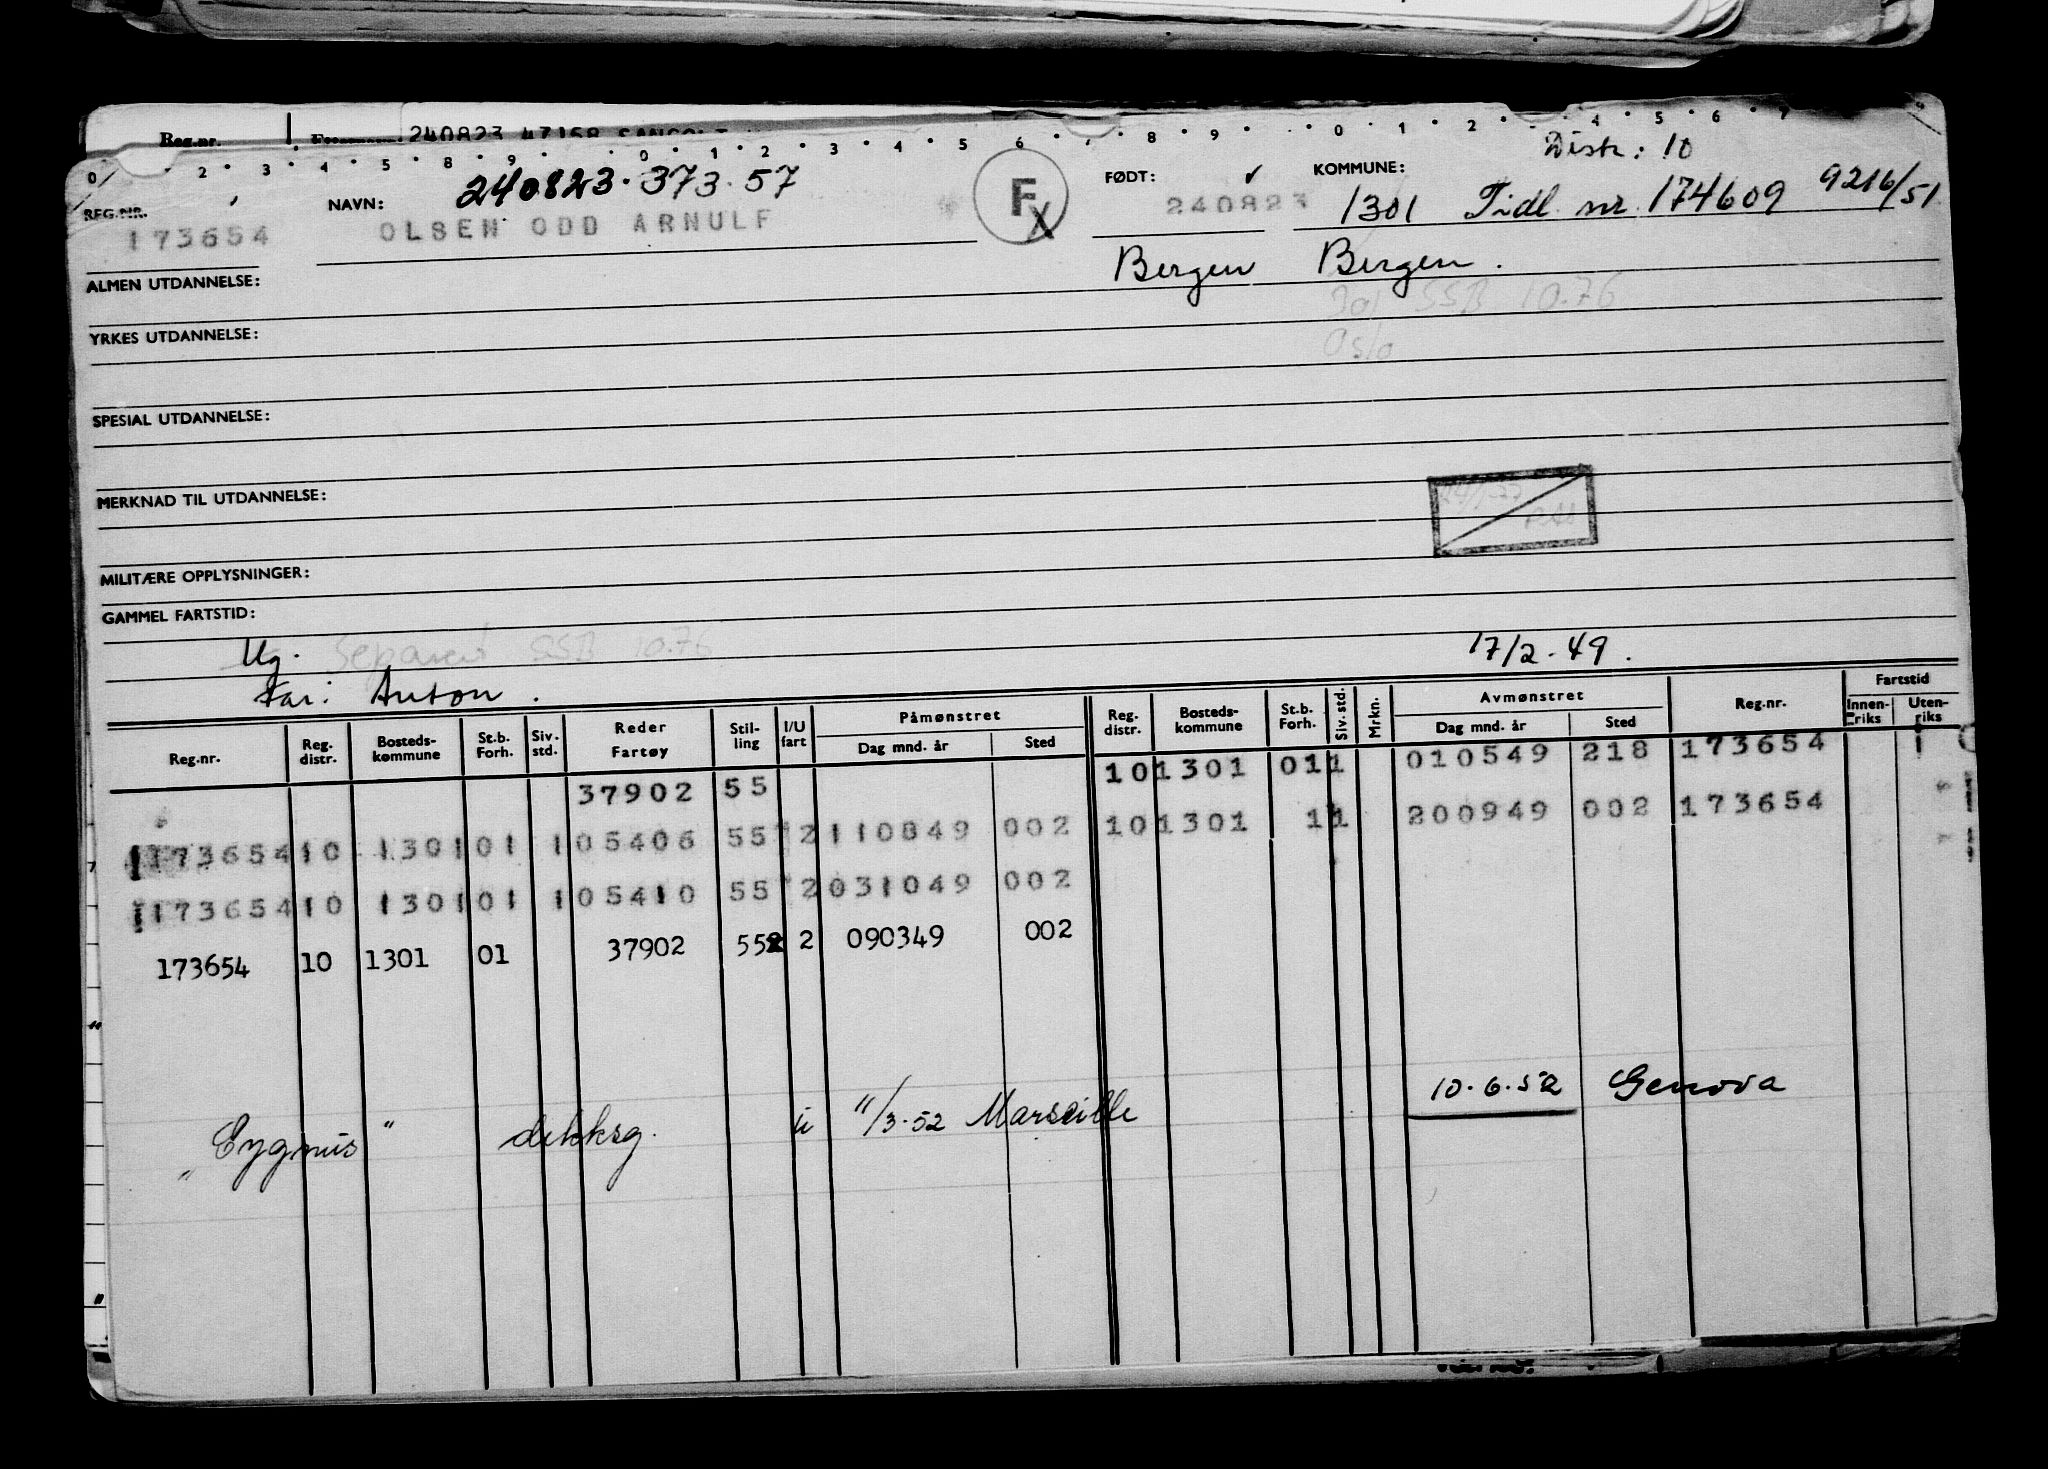 Reg.nr. 240823 47158
0 2 3 4 5 8 9 0 1 2 3 4 5 6 7 8 9 0 1 2 4 5 6 7
Distr: 10
REG.NR. NAVN: 240823.373.57 F X FØDT: KOMMUNE:
173654 OLSEN ODD ARNULF 240823 1301 Tidl. nr. 174609 9216/51
ALMEN UTDANNELSE: Bergen Bergen.
SSB 10.76
YRKES UTDANNELSE: Oslo
SPESIAL UTDANNELSE:
MERKNAD TIL UTDANNELSE:
MILITÆRE OPPLYSNINGER:
GAMMEL FARTSTID:
Ug. Separert SSB 10.76 17/2-49.
Far: Anton.
Reg.nr. Reg. distr. Bosteds-kommune St.b. Forh. Siv. std. Reder Fartøy Stil-ling I/U fart Påmønstret Dag mnd. år Sted Reg. distr. Bosteds-kommune St.b. Forh. Siv. std. Mrkn. Avmønstret Dag mnd. år Sted Reg.nr. Fartstid Innen-riks Uten-riks
37902 55 10 1301 01 1 010549 218 173654
173654 10 1301 01 1 05406 55 2 110849 002 10 1301 1 1 200949 002 173654
173654 10 1301 01 1 05410 55 2 031049 002
173654 10 1301 01 37902 55 2 090349 002
"Cygnus" dekksg. u 11/3-52 Marseille 10.6.52 Genova